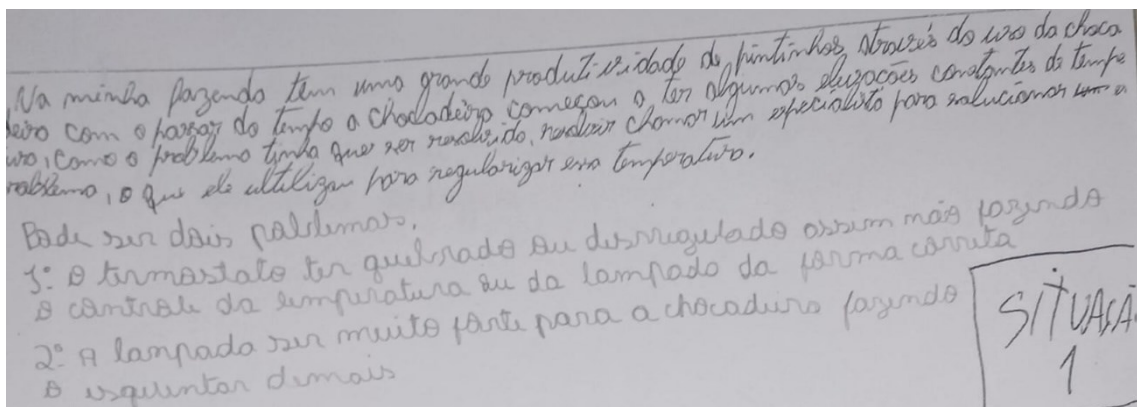 Na minha fazenda tem uma grande produtividade de pintinhos, através do uso da choca
deira com o passar do tempo a chocadeira começou a ter algumas elevações constantes de tempe
ura, como o problema tinha que ser resolvido, resolvir chamar um especialista para solucionar o
roblema, o que ele ultilizou para regularizar essa temperatura.
Pode ser dois poblemas.
1º O termostato ter quebrado ou desregulado assim não fazendo
o controle da temperatura ou da lampada da forma correta
2º A lampada ser muito forte para a chocadeira fazendo
o esquentar demais
SITUAÇÃ
1